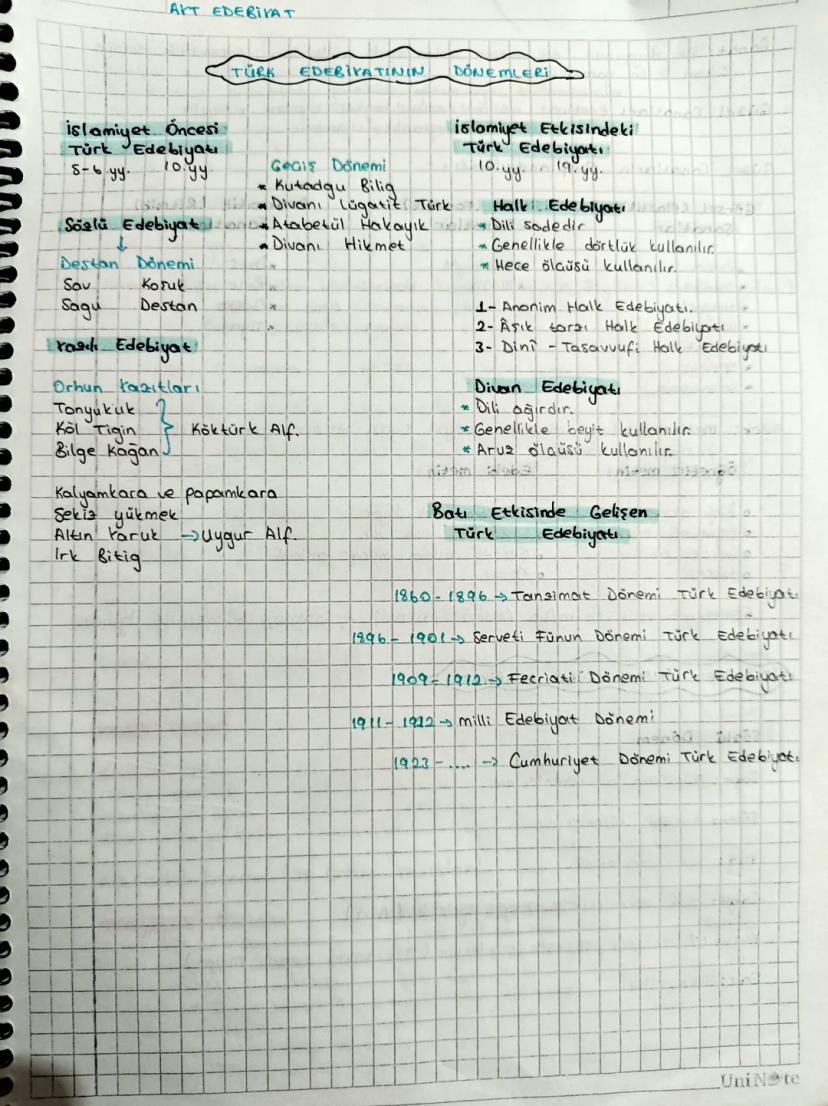 AYT EDEBİYAT
TÜRK EDEBİYATININ DÖNEMLERİ
İslamiyet Öncesi
Türk Edebiyatı
5-6.yy. 10.yy
Sözlü Edebiyat
↓
Destan Dönemi
Sav Koşuk
Sagu Destan
Yazılı Edebiyat
Orhun Yazıtları
Tonyukuk
Köl Tigin
Bilge Kağan
Köktürk Alf.
Kalyamkara ve papamkara
Sekiz yükmek
Altın Yaruk → Uygur Alf.
Irk Bitig
Geçiş Dönemi
* Kutadgu Bilig
* Divanı Lügatit Türk
* Atabetül Hakayık
* Divanı Hikmet
İslamiyet Etkisindeki
Türk Edebiyatı
10.yy. 19.yy.
Halk Edebiyatı
* Dili sadedir
* Genellikle dörtlük kullanılır.
* Hece ölçüsü kullanılır.
1- Anonim Halk Edebiyatı.
2- Âşık tarzı Halk Edebiyatı
3- Dinî - Tasavvufi Halk Edebiyatı
Divan Edebiyatı
* Dili ağırdır.
* Genellikle beyit kullanılır.
* Aruz ölçüsü kullanılır.
Batı Etkisinde Gelişen
Türk Edebiyatı
1860 - 1896 → Tanzimat Dönemi Türk Edebiyatı
1896 - 1901 → Serveti Fünun Dönemi Türk Edebiyatı
1909 - 1912 → Fecriati Dönemi Türk Edebiyatı
1911 - 1922 → milli Edebiyat Dönemi
1923 - .... → Cumhuriyet Dönemi Türk Edebiyatı
UniNote